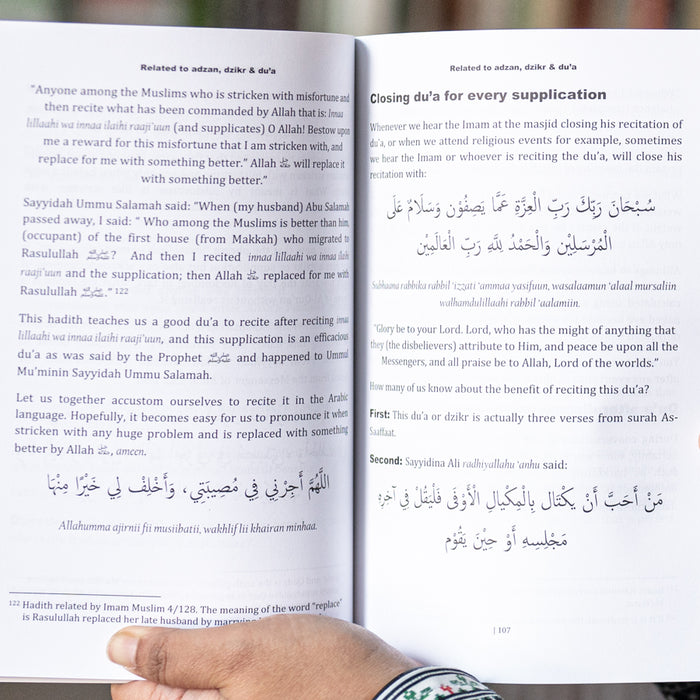 Related to adzan, dzikr & du'a
"Anyone among the Muslims who is stricken with misfortune and
then recite what has been commanded by Allah that is: Innaa
lillaahi wa innaa ilaihi raaji'uun (and supplicates) O Allah! Bestow upon
me a reward for this misfortune that I am stricken with, and
replace for me with something better." Allah ﷻ will replace it
with something better."
Sayyidah Ummu Salamah said: "When (my husband) Abu Salamah
passed away, I said: " Who among the Muslims is better than him,
(occupant) of the first house (from Makkah) who migrated to
Rasulullah ﷺ? And then I recited innaa lillaahi wa innaa ilaihi
raaji'uun and the supplication; then Allah ﷻ replaced for me with
Rasulullah ﷺ." 122
This hadith teaches us a good du'a to recite after reciting innaa
lillaahi wa innaa ilaihi raaji'uun, and this supplication is an efficacious
du'a as was said by the Prophet ﷺ and happened to Ummul
Mu'minin Sayyidah Ummu Salamah.
Let us together accustom ourselves to recite it in the Arabic
language. Hopefully, it becomes easy for us to pronounce it when
stricken with any huge problem and is replaced with something
better by Allah ﷻ, ameen.
اللَّهُمَّ أَجِرْنِي فِي مُصِيبَتِي، وَأَخْلِفْ لِي خَيْرًا مِنْهَا
Allahumma ajirnii fii musiibatii, wakhlif lii khairan minhaa.
122 Hadith related by Imam Muslim 4/128. The meaning of the word "replace"
is Rasulullah replaced her late husband by
Related to adzan, dzikr & du'a
Closing du'a for every supplication
Whenever we hear the Imam at the masjid closing his recitation of
du'a, or when we attend religious events for example, sometimes
we hear the Imam or whoever is reciting the du'a, will close his
recitation with:
سُبْحَانَ رَبِّكَ رَبِّ الْعِزَّةِ عَمَّا يَصِفُوْنَ وَسَلَامٌ عَلَى
الْمُرْسَلِيْنَ وَالْحَمْدُ لِلَّهِ رَبِّ الْعَالَمِيْنَ
Subhaana rabbika rabbil 'izzati 'ammaa yasifuun, wasalaamun 'alaal mursaliin
walhamdulillaahi rabbil 'aalamiin.
"Glory be to your Lord. Lord, who has the might of anything that
they (the disbelievers) attribute to Him, and peace be upon all the
Messengers, and all praise be to Allah, Lord of the worlds."
How many of us know about the benefit of reciting this du'a?
First: This du'a or dzikr is actually three verses from surah As-
Saaffaat.
Second: Sayyidina Ali radhiyallahu 'anhu said:
مَنْ أَحَبَّ أَنْ يَكْتَالَ بِالْمِكْيَالِ الْأَوْفَى فَلْيَقُلْ فِي آخِرِهِ
مَجْلِسِهِ أَوْ حِيْنَ يَقُوْم
| 107